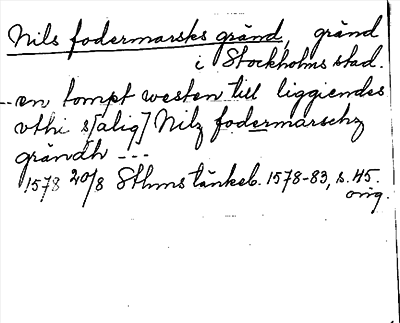 Nils fodermarsks gränd, gränd
i Stockholms stad.
--en tompt westen till liggiendes
vthi s[alig] Nilz fodermarschz
grändh ---
1578 20/8 Sthms tänkeb. 1578-83, s. 45.
orig.